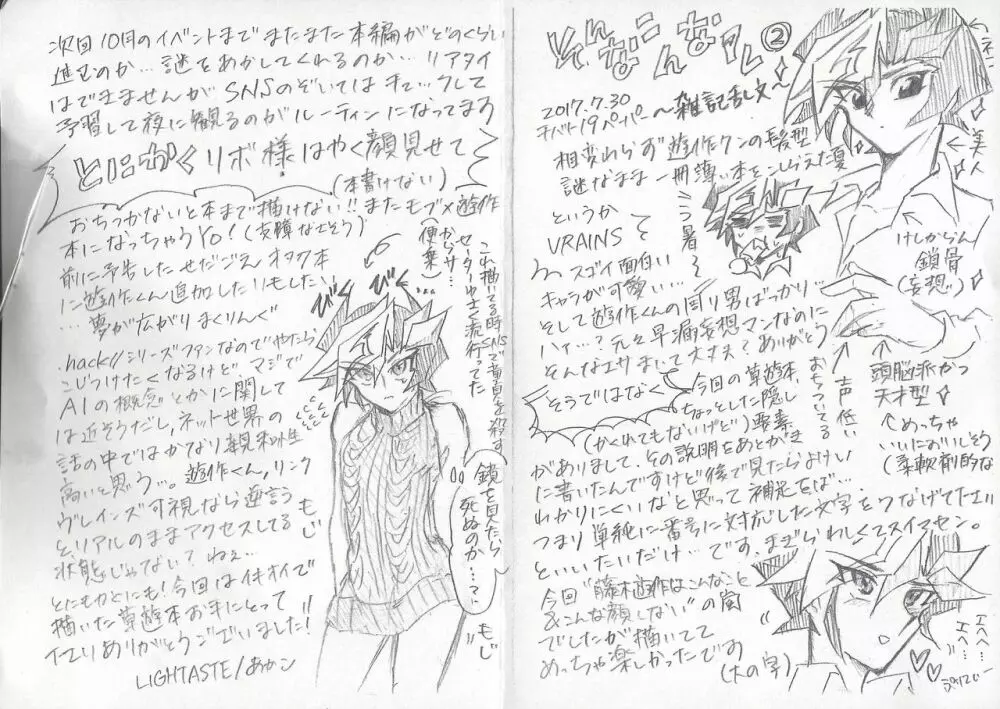 そんなこんなで ②
2017.7.30
千バト19ペーパー ～雑記乱文～
相変わらず遊作クンの髪型
謎なまま一冊薄い本をこしらえた夏
というか
VRAINS
スゴイ面白い
キャラが可愛い…
そして遊作くんの周り男ばっかり…
ハァ…？元々早漏妄想マンなのに
そんなエサまいて大丈夫？ありがとう
そうではなく
今回の草遊本、
ちょっとした隠し
(かくれてもないけど)要素
がありまして、その説明をあとがき
に書いたんですけど後で見たらよけい
わかりにくいなと思って補足をば…
つまり単純に番号に対応した文字をつなげてただ
といいたいだけ…です、まぎらわしくてスイマセン。
今回"藤木遊作はこんなこと
&こんな顔しない"の嵐
でしたが描いてて
めっちゃ楽しかったです
(大の字)
←美人
ミつ暑ミ
けしからん
鎖骨
(妄想)
頭脳派かつ
天才型
声低い
おちついてる
めっちゃ
いいにおいしそう
(柔軟剤的な
エヘヘ…
エヘヘ…
次回10月のイベントまでまたまた本編がどのくらい
進むのか…謎をあかしてくれるのか…リアタイ
はできませんがSNSのぞいてはキャーッして
予習して夜に観るのがルーティンになってます
とにかくリボ様はやく顔見せて
(本書けない)
おちつかないと本まで描けない!!またモブ×遊作
本になっちゃうYo!(支障なさそう)
前に予告したせだごえオタク本
に遊作くん追加したりもしたい、
…夢が広がりまくりんぐ
.hack//シリーズファンなのでやたら
こじつけたくなるけど、マジで
AIの概念とかに関して
は近そうだし、ネット世界の
話の中ではかなり親和性
高いと思う…。遊作くん、リンク
ヴレインズ可視なら逆言う
と、リアルのままアクセスしてる
状態じゃない？ねぇ…
とにもかくにも！今回はイキオイで
描いた草遊本お手にとって
イてりありがとうございました！
LIGHTASTE/あかコ
これ描いてる時SNSで童貞を殺す
セーターゆさく流行ってた
からサ…
(便乗)
びく
びく
鎖を見たら
死ぬのか…？
もじ
もじ